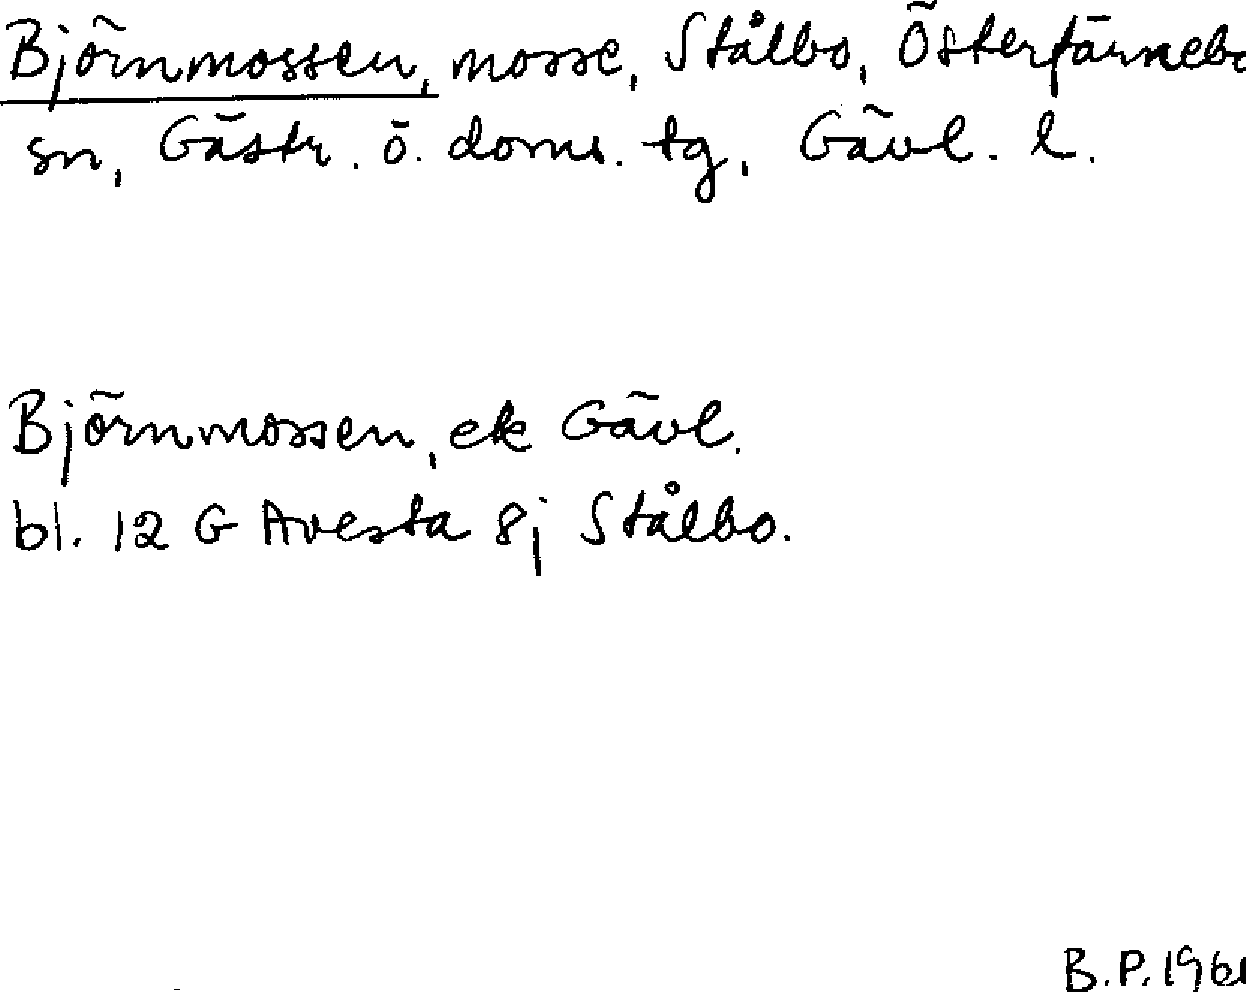 Björnmossen, mosse, Stålbo, Österfärnebo
sn, Gästr. ö. doms. tg, Gävl. l.
Björnmossen, ek Gävl.
bl. 12 G Avesta 8j Stålbo.
B.P. 1961